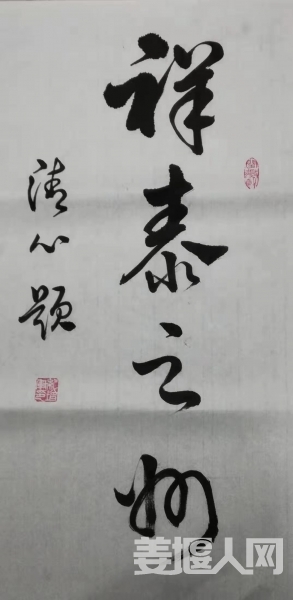 祥泰之州
清心题
姜堰人网